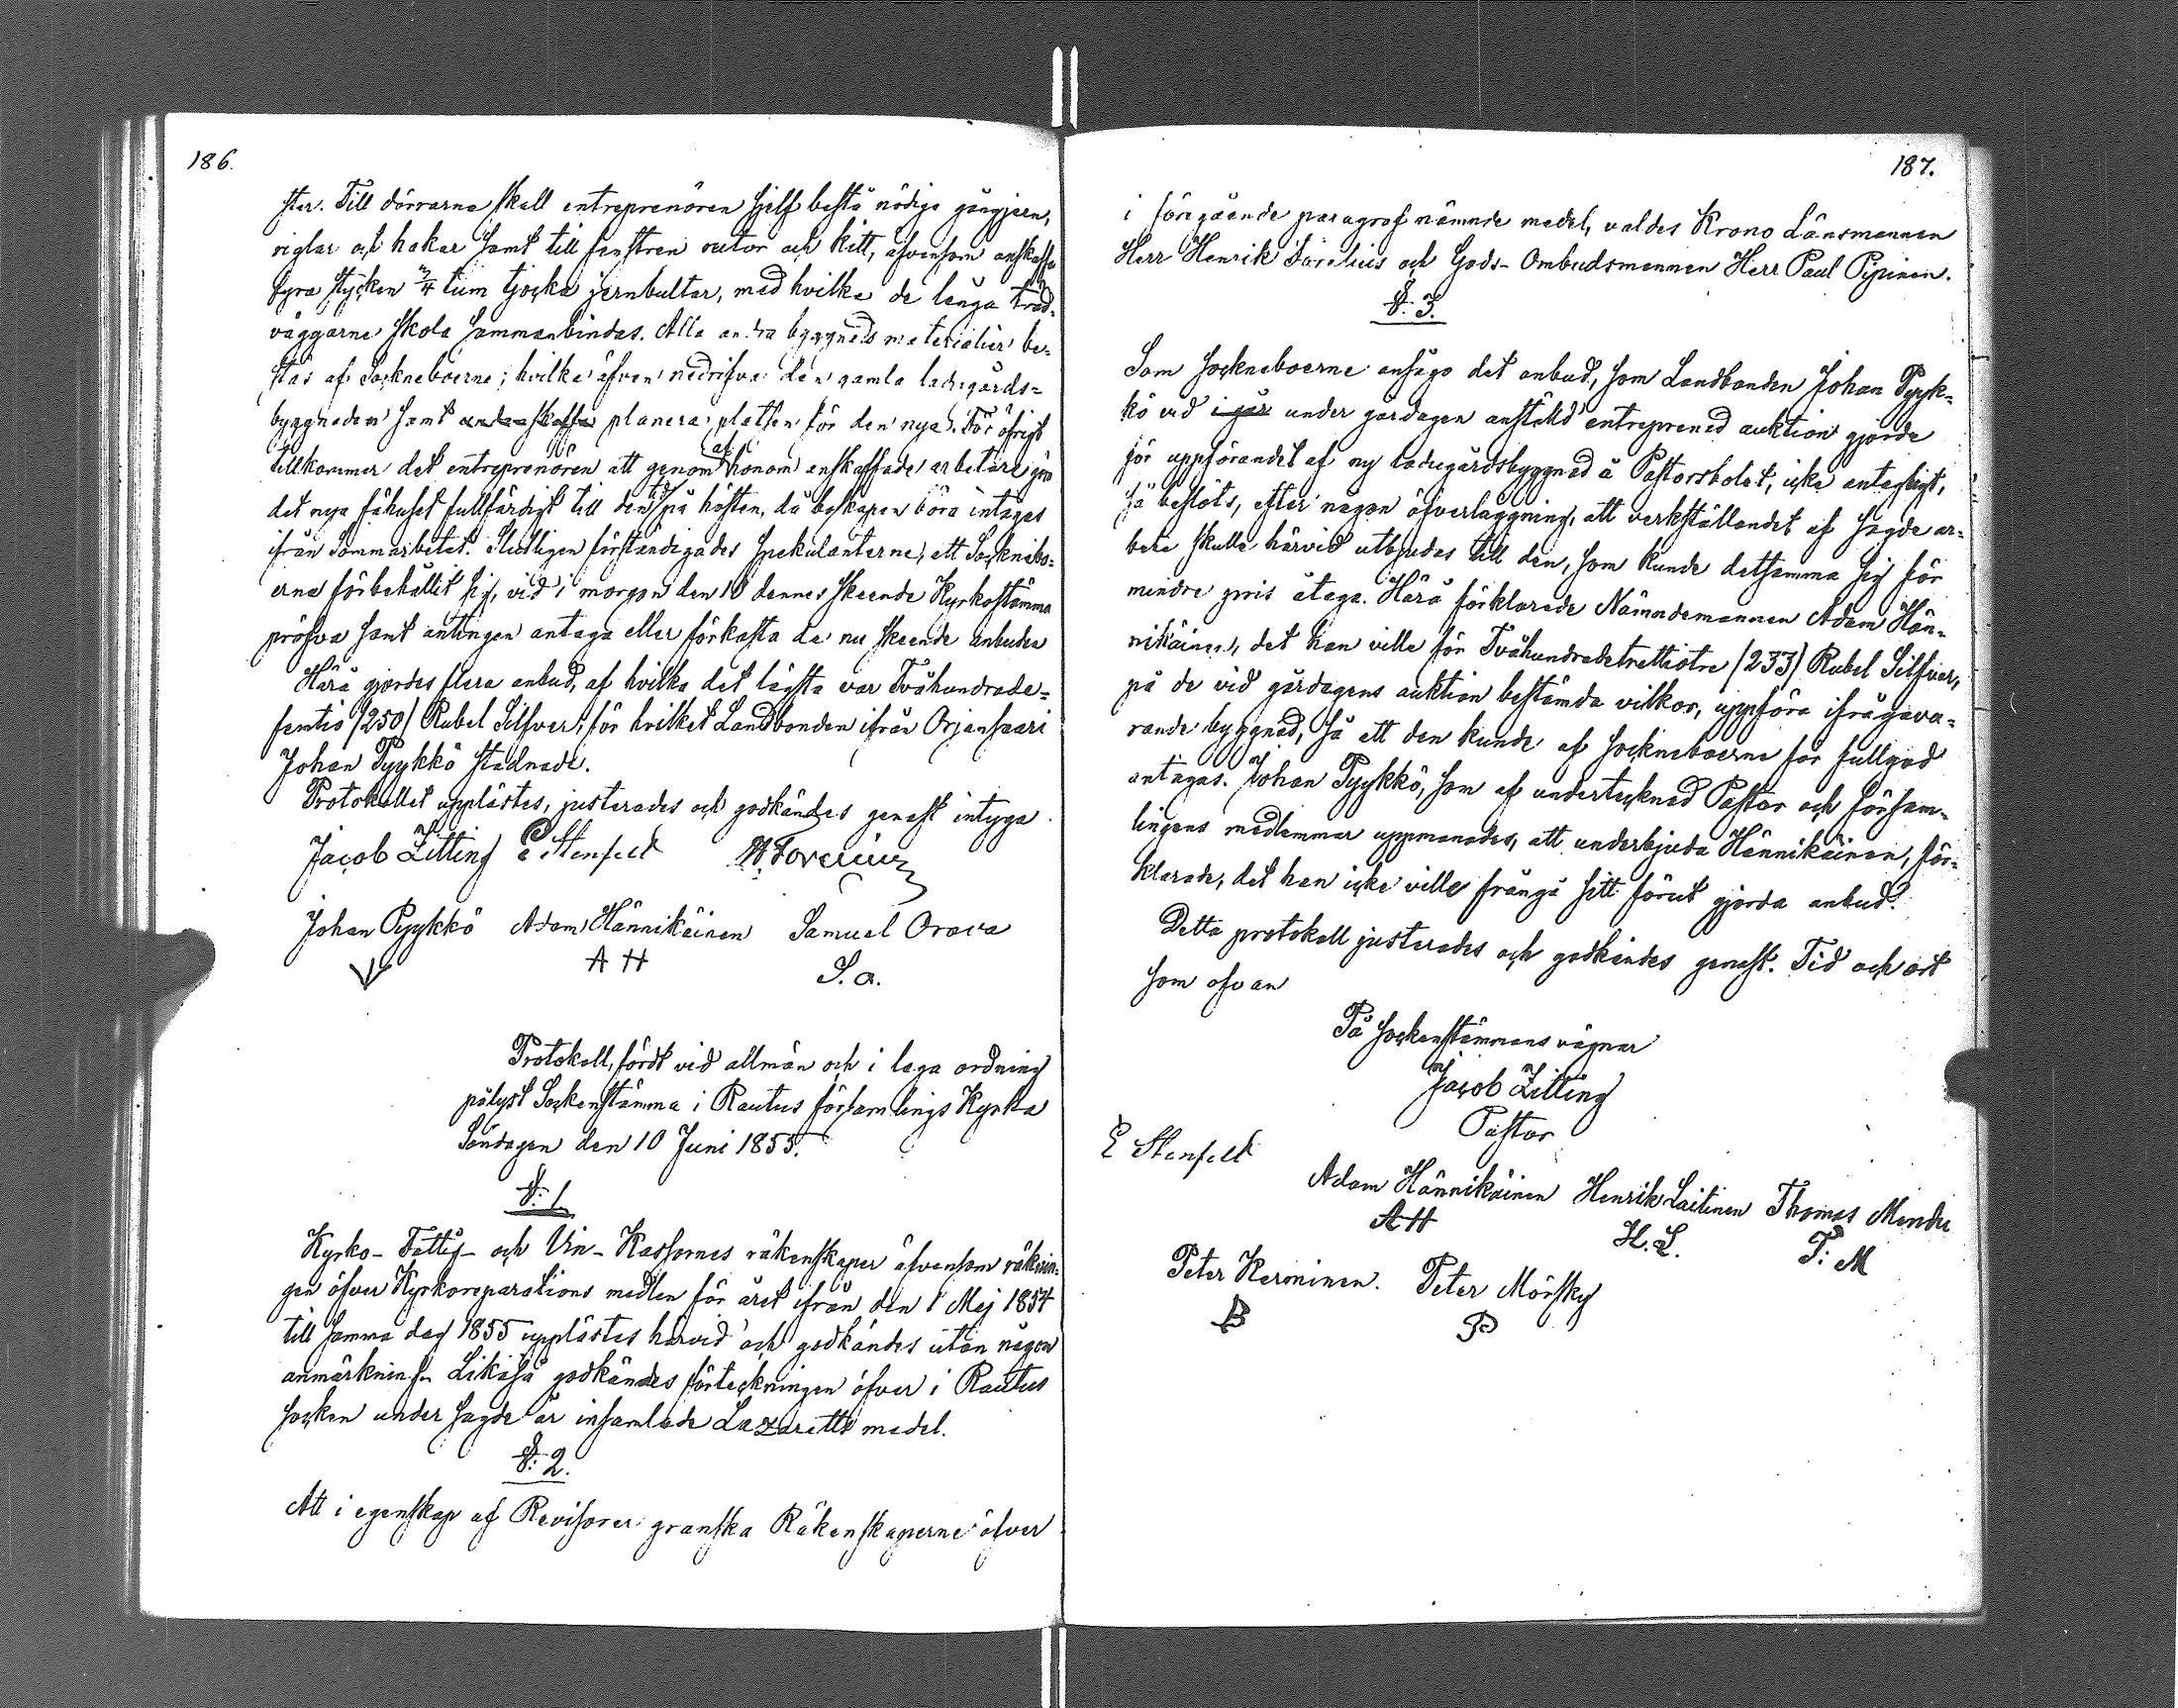 186.
ster. Till dörrarna skall entreprenören sjelf bestå nödiga gångjern,
riglar och hakar samt till fenstren rutor och kitt, äfvensom anskaffa
fyra stycken 3/4 tum tjocka jernbultar, med hvilka de långa träd-
väggarne skola sammanbindas. Alla andra byggnads materialier be-
stås af Sockneboerne; hvilka äfven nedrifva den gamla ladugårds=
byggnaden samt planera platsen för den nya. För öfrigt
tillkommer det entreprenören att genom af honom anskaffade arbetare göra
det nya fähuset fullfärdigt till den tid på hösten, då boskapen böra intagas
ifrån sommarbetet. Slutligen förständigades spekulanterne, att Socknebo=
erne förbehållit sig, vid i morgon den 10 dennes skeende Kyrkostämma
pröfva samt antingen antaga eller förkasta de nu skeende anbuden
Härå gjordes flera anbud, af hvilka det lägsta var Tvåhundrade=
femtio /250/ Rubel Silfver; för hvilket Landbonden ifrån Orjansaari
Johan Pyykkö stadnade.
Protokollet upplästes, justerades och godkändes genast intyga.
Jacob Zitting E Stenfelt H. Forelius
Johan Pyykkö Adam Hännikäinen Samuel Orava
A H S. O.
Protokoll, fördt vid allmän och i laga ordning
pålyst Sockenstämma i Rautus församlings Kyrka
Söndagen den 10 Juni 1855.
§. 1
Kyrko- Fattig- och Vin- Kassornes räkenskaper äfvensom räknin-
gen öfver Kyrkoreparations medlen för året ifrån den 1 Maj 1854
till samma dag 1855 upplästes härvid och godkändes utan någon
anmärkning. Likaså godkändes förteckningen öfver i Rautus
socken under sagde år insamlade Lazaretts medel.
§. 2.
Att i egenskap af Revisorer granska Räkenskaperne öfver
187.
i föregående paragraf nämnde medel, valdes Krono Länsmannen
Herr Henrik Forelius och Gods-Ombudsmannen Herr Paul Pipinen.
§. 3.
Som sockneboerne ansågo det anbud, som Landbonden Johan Pyyk=
kö vid i går under gårdagen anställd entreprenad auktion gjorde
för uppförandet af ny ladugårdsbyggnad å Pastorsbolet, icke antagligt,
så beslöts, efter någon öfverläggning, att verkställandet af sagde ar=
bete skulle härvid utbjudas till den, som kunde detsamma sig för
mindre pris åtaga. Härå förklarade Nämndemannen Adam Hän-
nikäinen, det han ville för Tvåhundradetrettiotre /233/ Rubel Silfver,
på de vid gårdagens auktion bestämda vilkor, uppföra ifrågava=
rande byggnad, så att den kunde af sockneboerne för fullgod
antagas. Johan Pyykkö, som af undertecknad Pastor och försam-
lingens medlemmar uppmanades, att underbjuda Hännikäinen, för=
klarade, det han icke ville frångå sitt förut gjorda anbud.
Detta protokoll justerades och godkändes genast. Tid och ort
som ofvan
På sockenstämmans vägnar
Jacob Zitting
Pastor
E Stenfelt
Adam Hännikäinen Henrik Laitinen Thomas Mondu
A H H. L. T: M
Peter Kerminen. Peter Mörsky